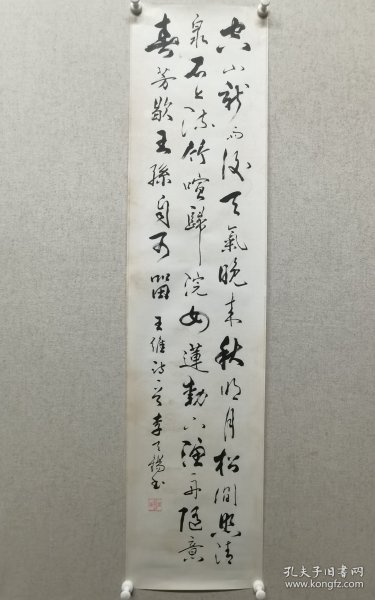 空山新雨後天氣晚来秋明月松間照清
泉石上流竹喧歸浣女蓮動下漁舟隨意
春芳歇王孫自可留 王維詩 李
孔夫子旧书网
www.kongfz.com